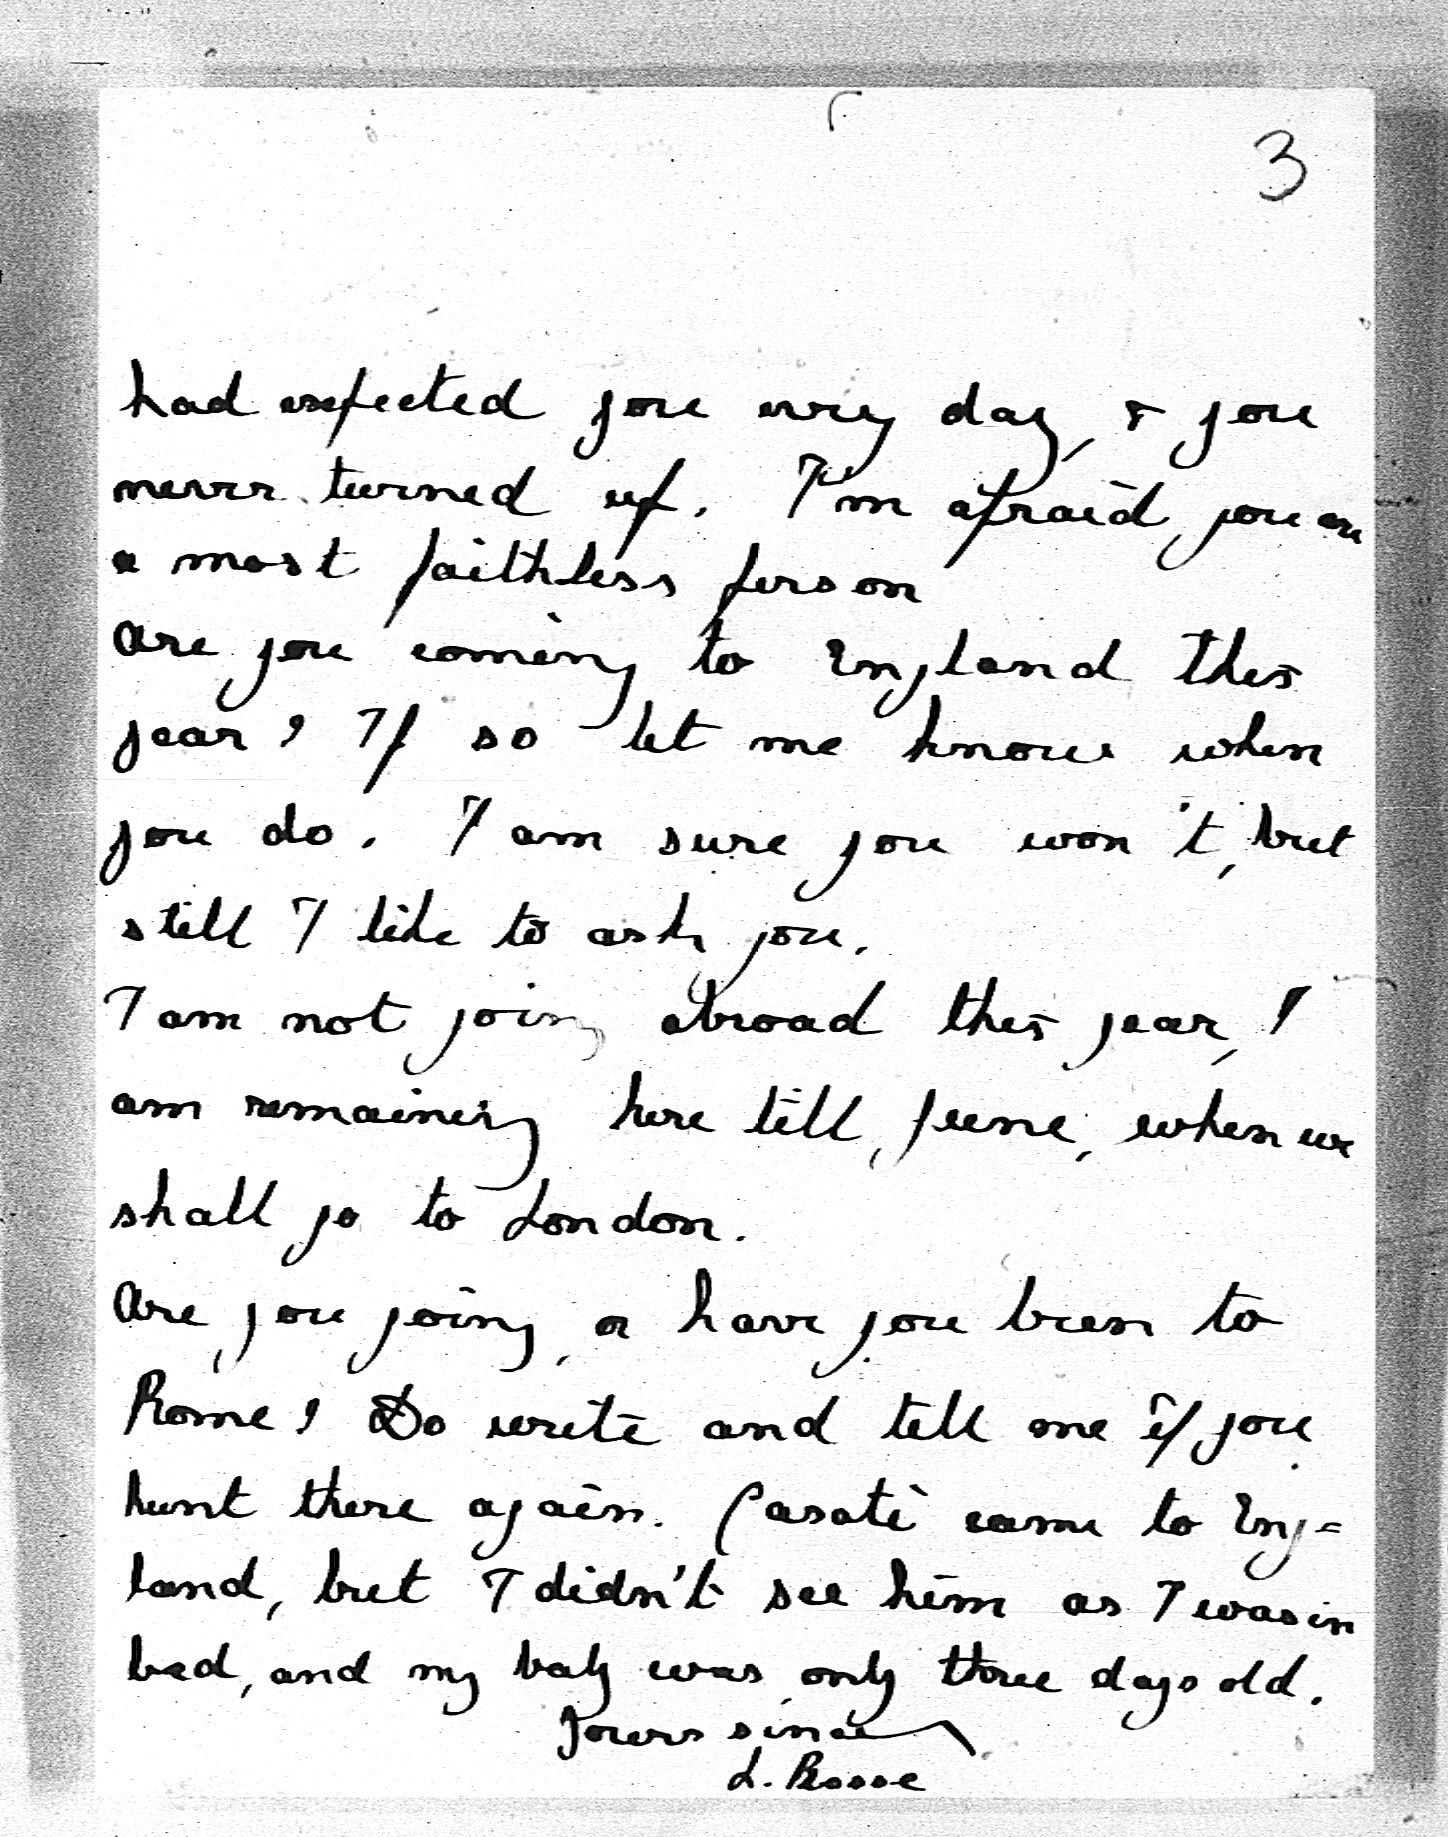 3
had expected you every day, & you
never turned up. I'm afraid you are
a most faithless person
Are you coming to England this
year? If so let me know when
you do. I am sure you won't, but
still I like to ask you.
I am not going abroad this year, I
am remaining here till June, when we
shall go to London.
Are you going, or have you been to
Rome? Do write and tell me if you
hunt there again. Casati came to Eng=
land, but I didn't see him as I was in
bed, and my baby was only three days old.
Yours since
L. Rosse